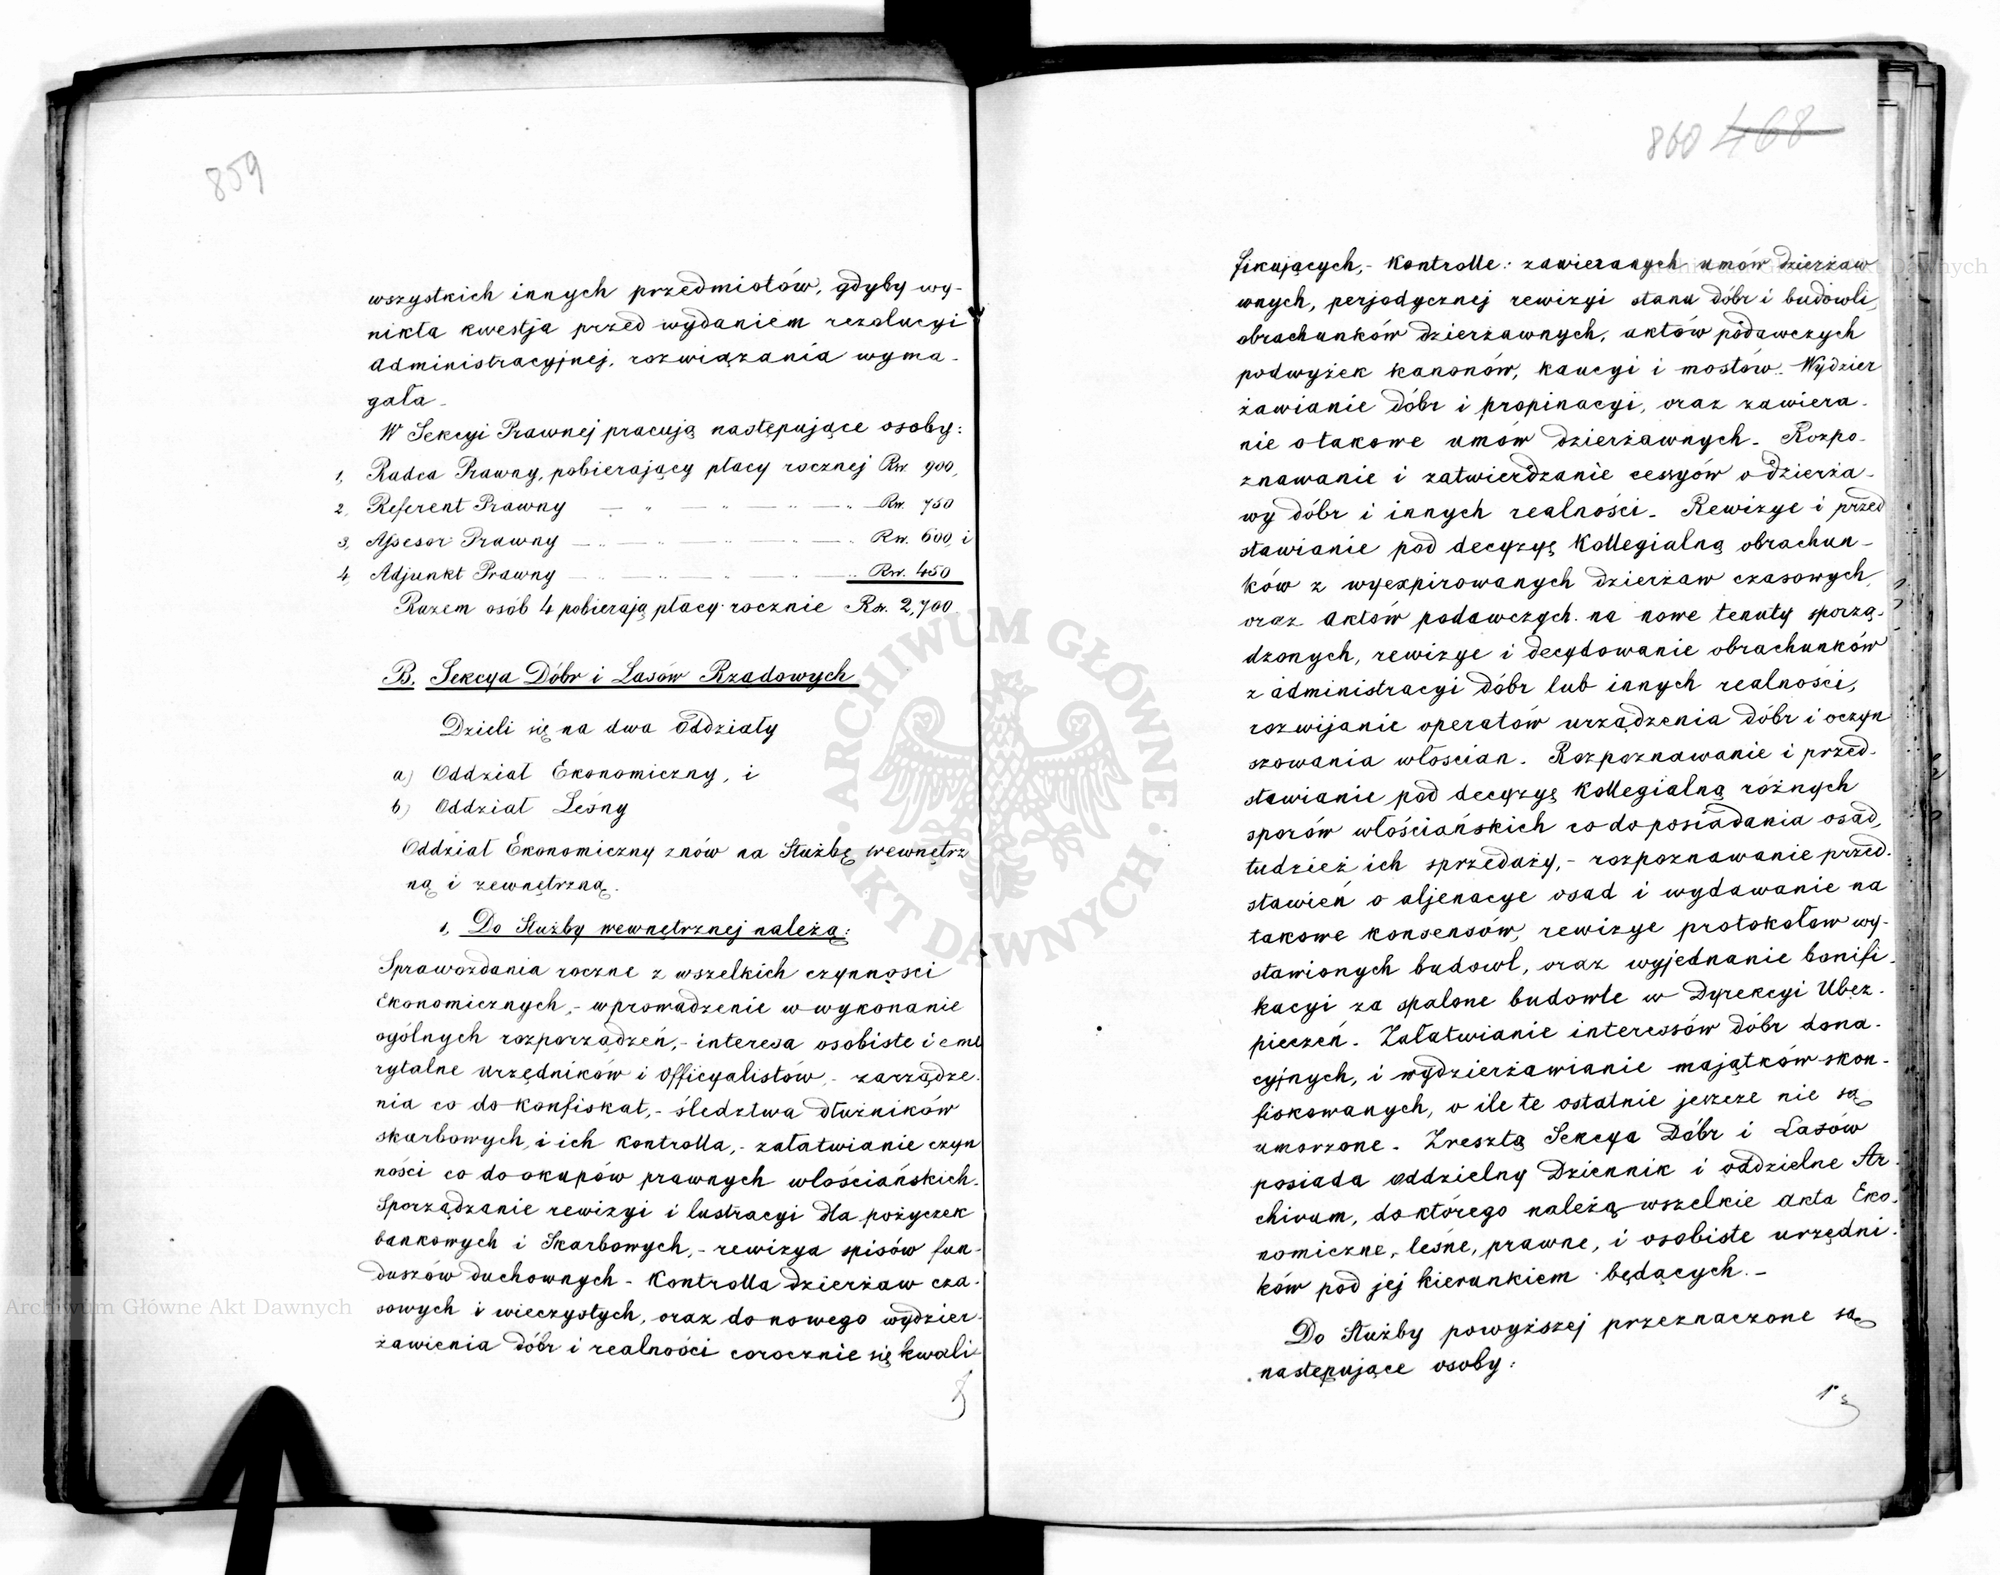 859
wszystkich innych przedmiotów, gdyby wy-
nikła kwestja przed wydaniem rezolucyi
administracyjnej, rozwiązania wyma-
gała.
W Sekcyi Prawnej pracują następujące osoby:
1, Radca Prawny, pobierający płacy rocznej Rsr. 900,
2, Referent Prawny — „ — „ — „ — „ — Rsr. 750
3, Assesor Prawny — „ — „ — „ — „ — Rsr. 600, i
4, Adjunkt Prawny — „ — „ — „ — „ Rsr. 450
Razem osób 4 pobierają płacy rocznie Rsr. 2,700.
B. Sekcya Dóbr i Lasów Rządowych
Dzieli się na dwa Oddziały
a) Oddział Ekonomiczny, i
b) Oddział Leśny
Oddział Ekonomiczny znów na Służbę wewnętrz
ną i zewnętrzną.
1, Do Służby wewnętrznej należą:
Sprawozdania roczne z wszelkich czynności
Ekonomicznych,- wprowadzenie w wykonanie
ogólnych rozporządzeń,- interesa osobiste i eme
rytalne urzędników i officyalistów,- zarządze-
nia co do konfiskat,- śledztwa dłużników
skarbowych, i ich kontrolla,- załatwianie czyn
ności co do okupów prawnych włościańskich.
Sporządzanie rewizyi i lustracyi dla pożyczek
bankowych i Skarbowych,- rewizya spisów fun-
duszów duchownych - Kontrolla dzierżaw cza-
sowych i wieczystych, oraz do nowego wydzier-
żawienia dóbr i realności corocznie się kwali-
860 468
fikujących,- Kontrolle: zawieranych umów dzierżaw
wnych, perjodycznej rewizyi stanu dóbr i budowli,
obrachunków dzierżawnych, aktów podawczych
podwyżek kanonów, kaucyi i mostów. Wydzier
żawianie dóbr i propinacyi, oraz zawiera-
nie o takowe umów dzierżawnych. Rozpo-
znawanie i zatwierdzanie cessyów o dzierża-
wy dóbr i innych realności. Rewizye i przed
stawianie pod decyzyę Kollegialną obrachun-
ków z wyexpirowanych dzierżaw czasowych,
oraz aktów podawczych na nowe tenuty sporzą-
dzonych, rewizye i decydowanie obrachunków
z administracyi dóbr lub innych realności,
rozwijanie operatów urządzenia dóbr i oczyn
szowania włościan. Rozpoznawanie i przed-
stawianie pod decyzyę Kollegialną różnych
sporów włościańskich co do posiadania osad,
tudzież ich sprzedaży,- rozpoznawanie przed-
stawień o aljenacye osad i wydawanie na
takowe konsensów, rewizye protokołów wy-
stawionych budowl, oraz wyjednanie bonifi-
kacyi za spalone budowle w Dyrekcyi Ubez-
pieczeń. Załatwianie interessów dóbr dona-
cyjnych, i wydzierżawianie majątków skon-
fiskowanych, o ile te ostatnie jeszcze nie są
umorzone. Zresztą Sekcya Dóbr i Lasów
posiada oddzielny Dziennik i oddzielne Ar-
chivum, do którego należą wszelkie akta Eko-
nomiczne, leśne, prawne, i osobiste urzędni-
ków pod jej kierunkiem będących.-
Do Służby powyższej przeznaczone są
następujące osoby:
ARCHIWUM GŁÓWNE AKT DAWNYCH
Archiwum Główne Akt Dawnych
Archiwum Główne Akt Dawnych